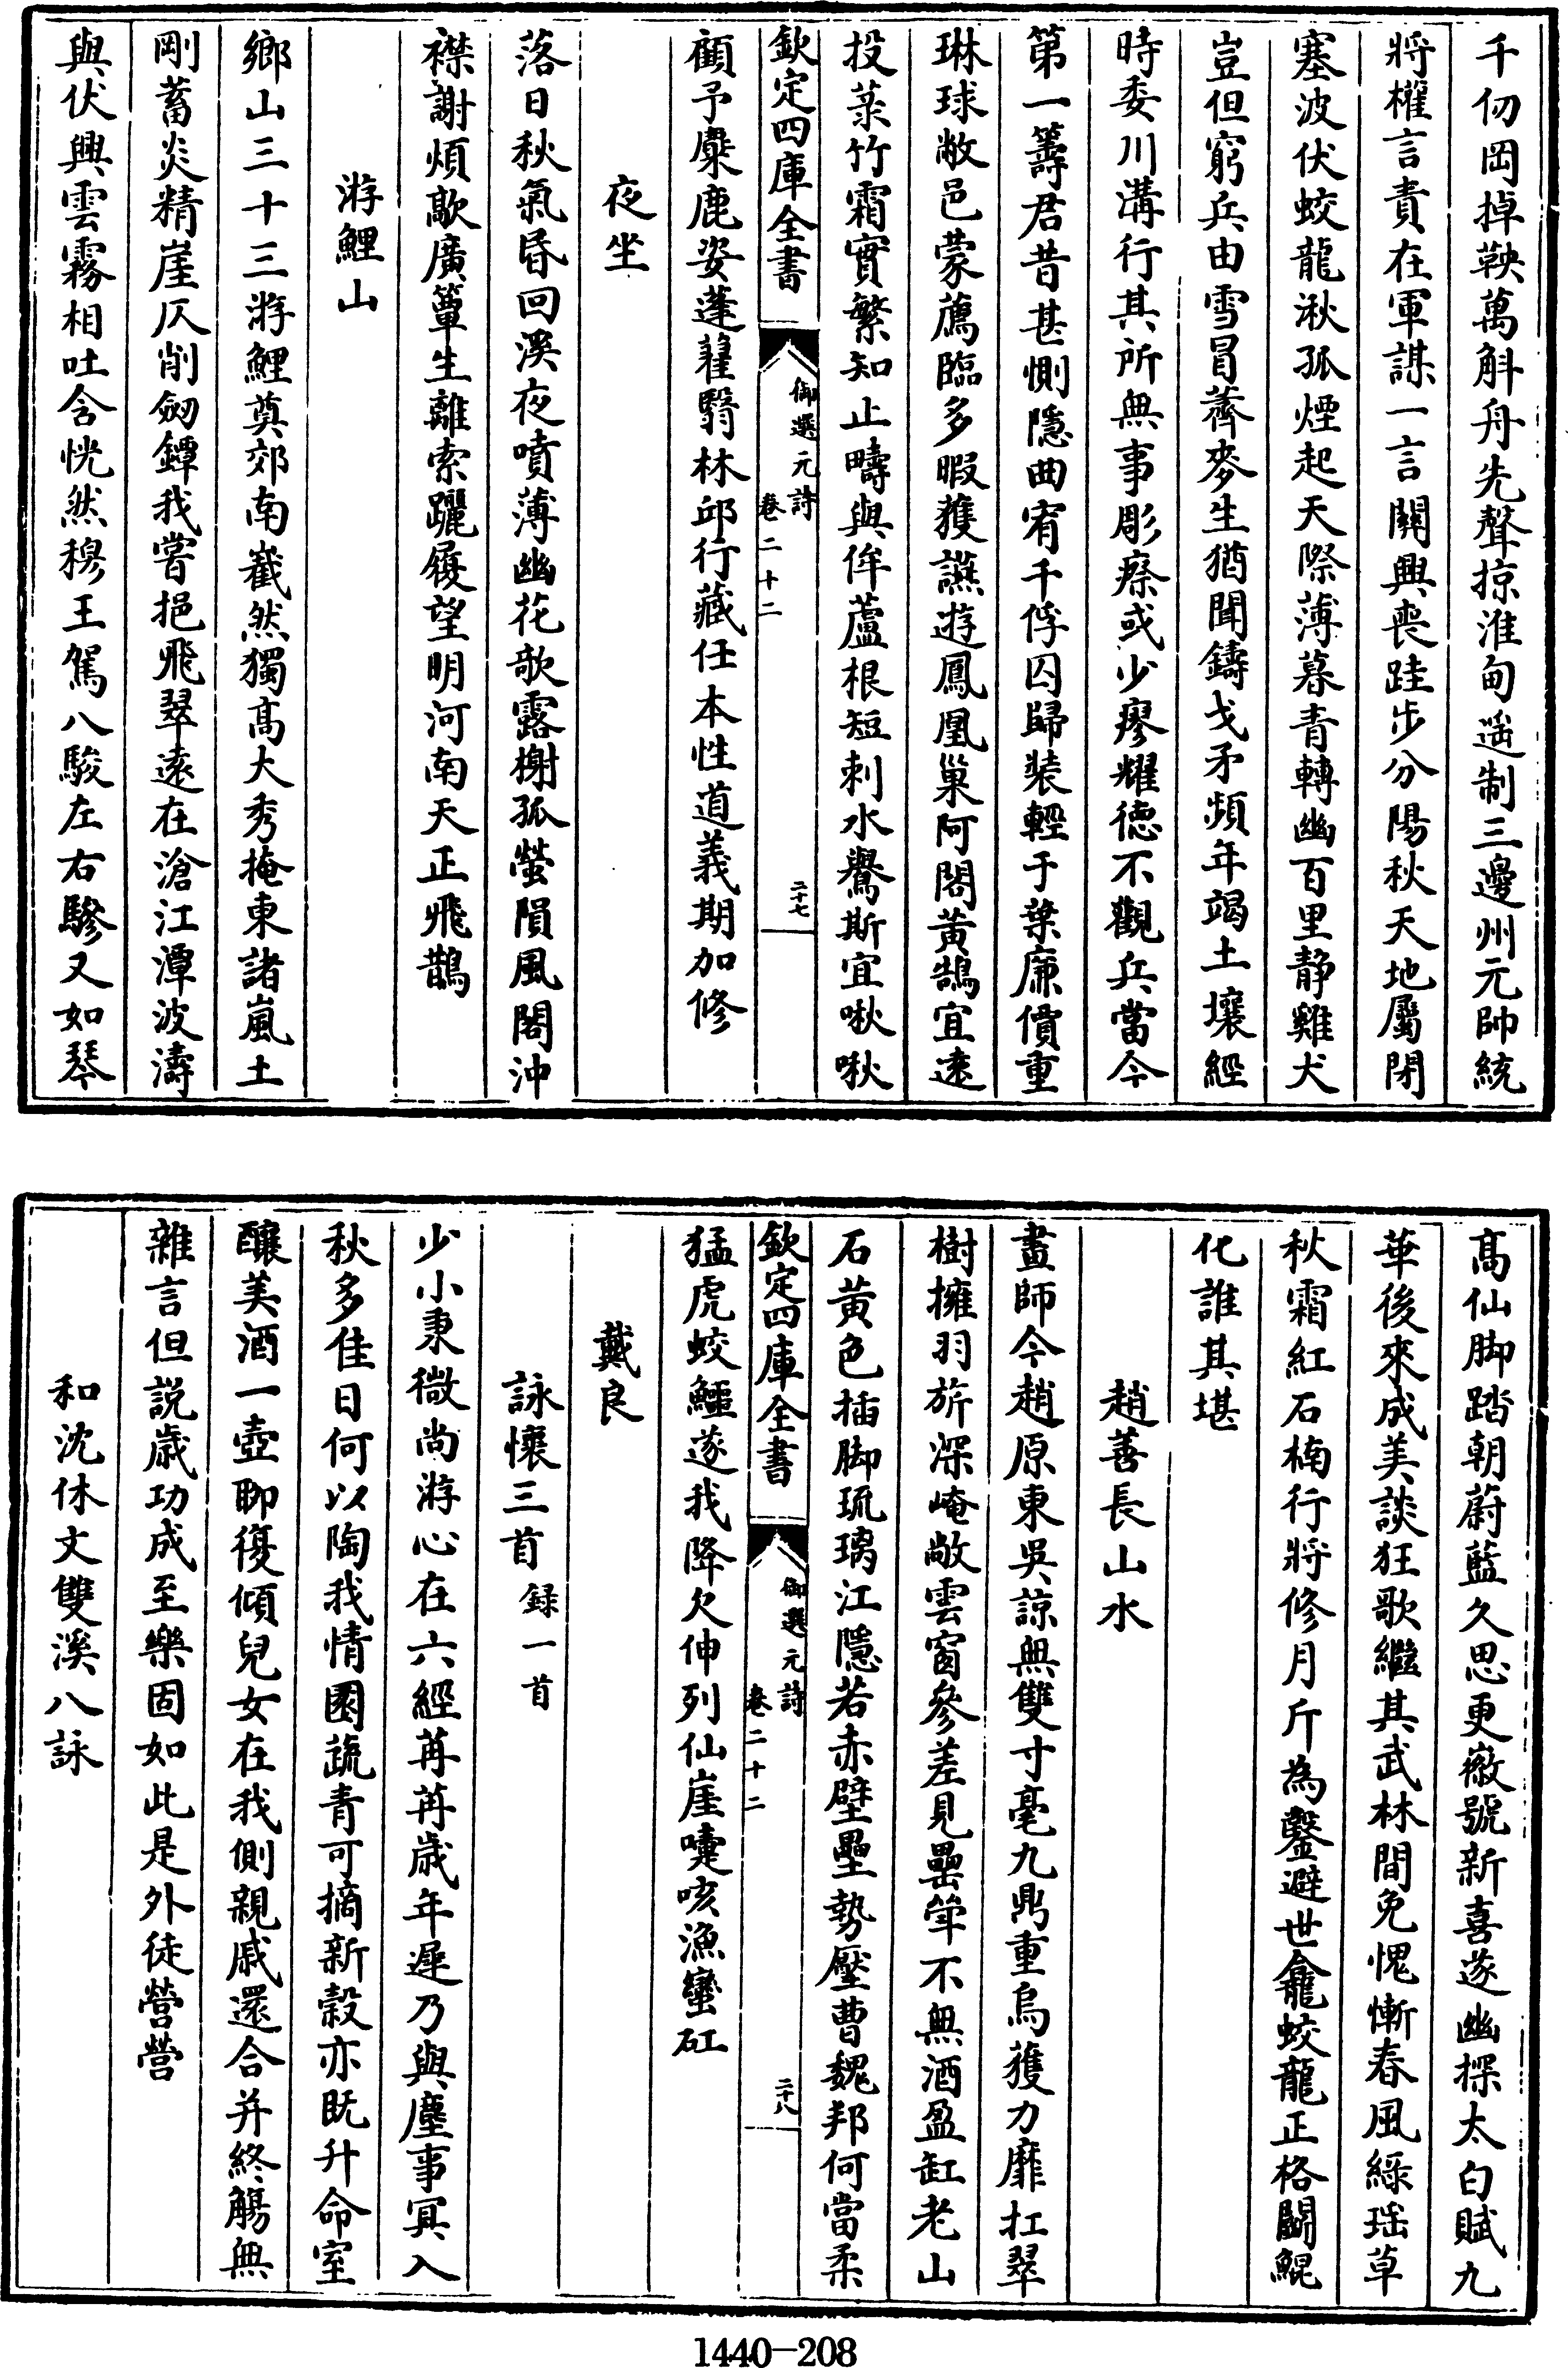 千仞岡掉鞅萬斛舟先聲掠淮甸遥制三邊州元帥統
將權言責在軍謀一言關興喪跬步分陽秋天地屬閉
塞波伏蛟龍湫孤煙起天際薄暮青轉幽百里静雞犬
豈但窮兵由雪冒薺麥生猶聞鑄戈矛頻年竭土壤經
時委川溝行其所無事彫瘵或少瘳耀德不觀兵當今
第一籌君昔甚惻隠曲宥千俘囚歸裝輕于葉廉價重
琳球敝邑蒙薦臨多暇獲讌遊鳳凰巢阿閣黄鵠宜逺
投菉竹霜實繁知止疇與侔蘆根短刺水鷽斯宜啾啾
欽定四庫全書
御選元詩
卷二十二
二十七
顧予麋鹿姿蓬藋翳林邱行藏任本性道義期加修
夜坐
落日秋氣昏回溪夜噴薄幽花歌露榭孤螢隕風閣沖
襟謝煩歊廣簟生離索躧履望明河南天正飛鵲
游鯉山
鄉山三十三游鯉奠郊南巀然獨髙大秀掩東諸嵐土
剛蓄炎精崖仄削劒鐔我嘗挹飛翠逺在滄江潭波濤
與伏興雲霧相吐含恍然穆王駕八駿左右驂又如琴
髙仙脚踏朝蔚藍久思更徽號新喜遂幽探太白賦九
華後來成美談狂歌繼其武林間免愧慚春風綠瑶草
秋霜紅石楠行將修月斤為鑿避世龕蛟龍正格鬭鯤
化誰其堪
趙善長山水
畫師今趙原東吳諒無雙寸毫九鼎重烏獲力靡扛翠
樹擁羽旂深崦敞雲窗參差見罍斝不無酒盈缸老山
石黄色插脚琉璃江隱若赤壁壘勢壓曹魏邦何當柔
欽定四庫全書
御選元詩
卷二十二
二十八
猛虎蛟鱷遂我降欠伸列仙崖嚏咳漁蠻矼
戴良
詠懷三首 録一首
少小秉微尚游心在六經苒苒歳年遲乃與塵事冥入
秋多佳日何以陶我情園蔬青可摘新穀亦既升命室
釀美酒一壺聊復傾兒女在我側親戚還合并終觴無
雜言但説歳功成至樂固如此是外徒營營
和沈休文雙溪八詠
1440-208